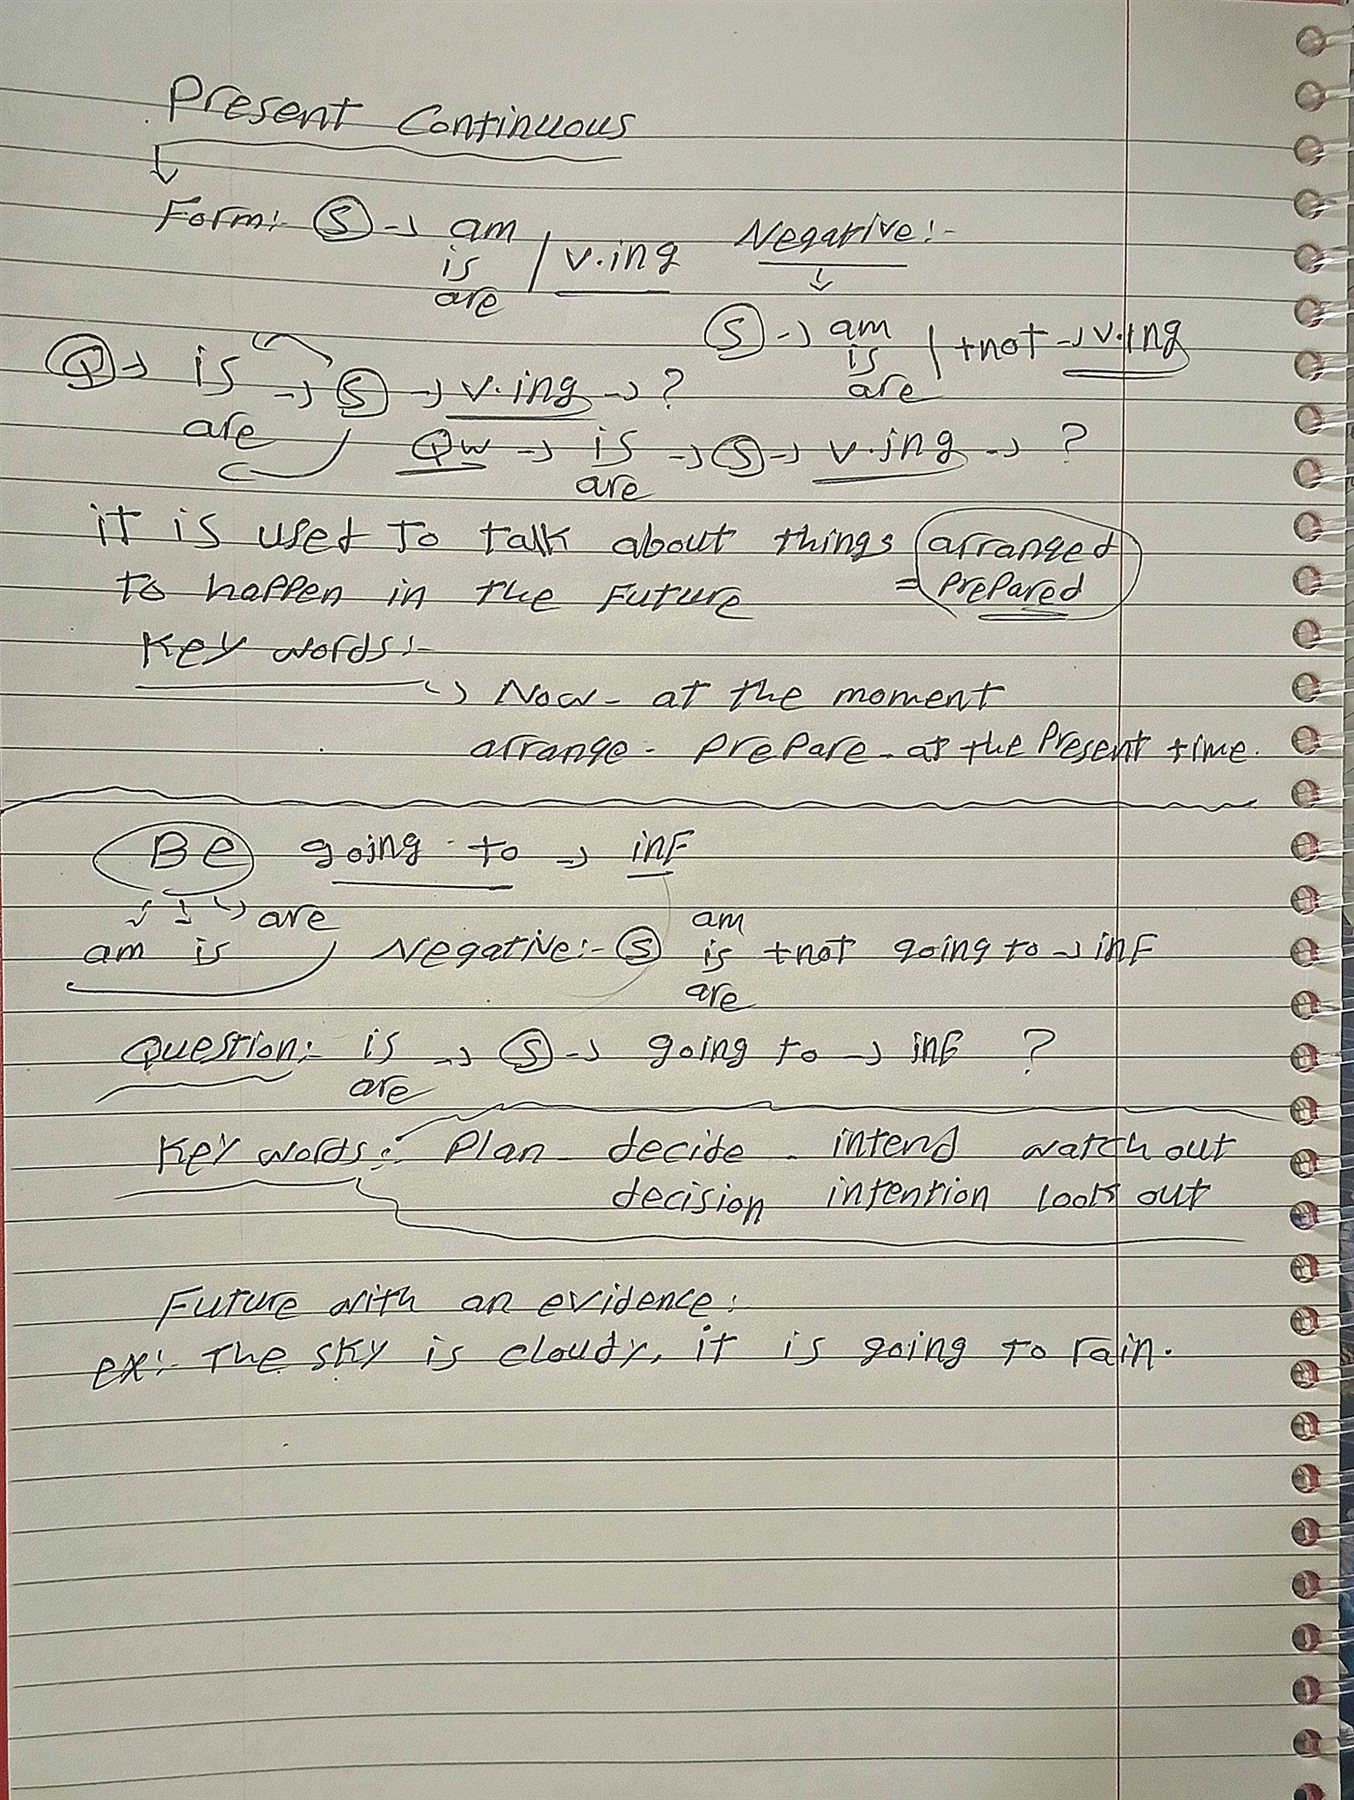 Present Continuous
Form:- S → am
is / v.ing
are
Negative:-
S → am
is | +not → v.ing
are
Q → is
→ S → v.ing → ?
are
Qw → is → S → v.ing → ?
are
it is used to talk about things arranged
to happen in the Future = Prepared
Key words:-
→ Now - at the moment
arrange - prepare - at the Present time.
Be going to → inf
are
am is
Negative:- S am
is +not going to → inf
are
Question:- is → S → going to → inf ?
are
Key words:- Plan - decide - intend watch out
decision intention look out
Future with an evidence:
ex:- The sky is cloudy, it is going to rain.